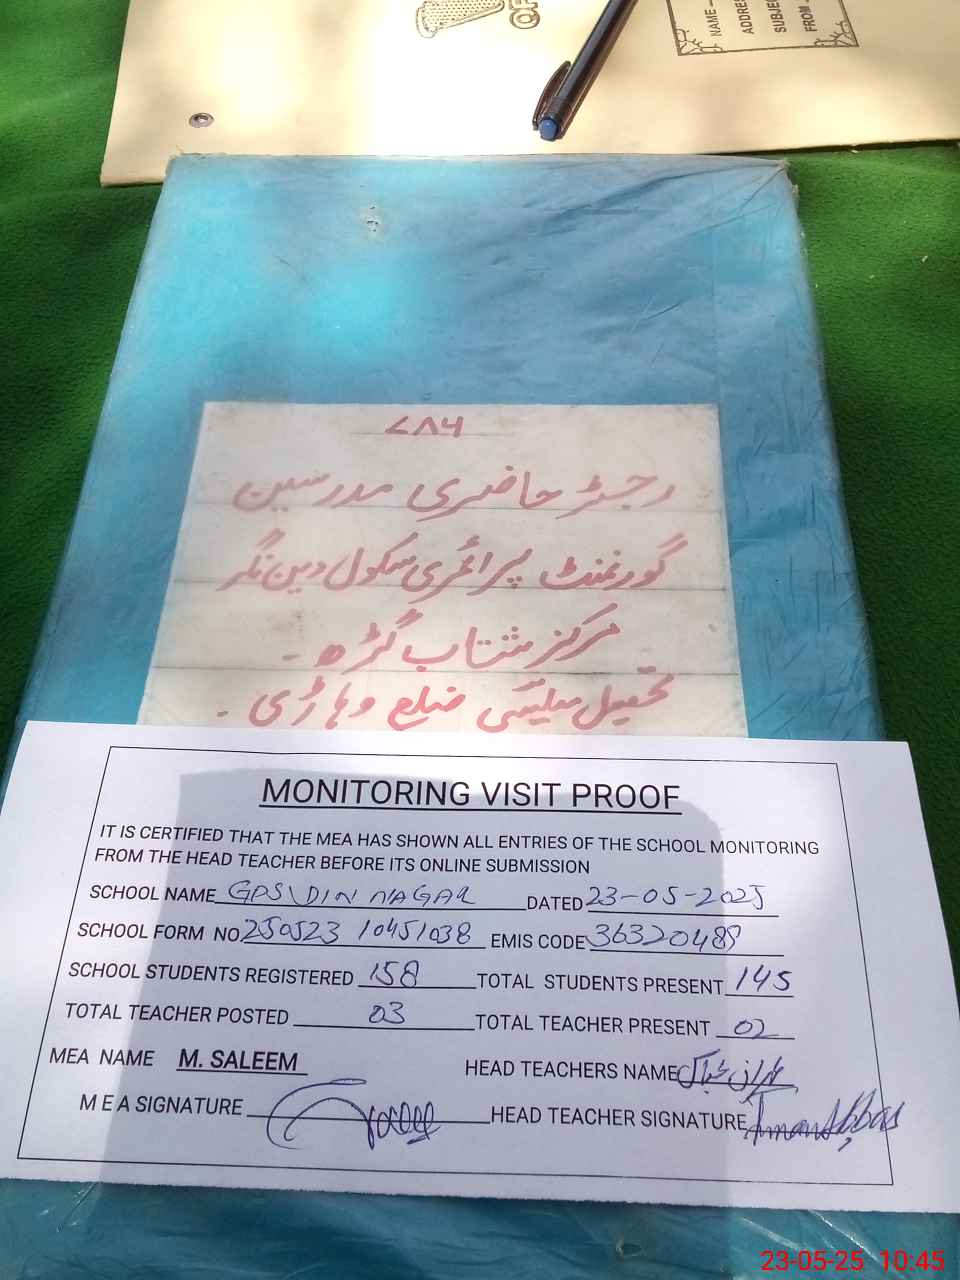 NAME
ADDRE
SUBJE
FROM
۷۸۶
رجسٹر حاضری مدرسین
گورنمنٹ پرائمری سکول دین نگر
مرکز شتاب گڑھ ۔
تحصیل میلسی ضلع وہاڑی ۔
MONITORING VISIT PROOF
IT IS CERTIFIED THAT THE MEA HAS SHOWN ALL ENTRIES OF THE SCHOOL MONITORING
FROM THE HEAD TEACHER BEFORE ITS ONLINE SUBMISSION
SCHOOL NAME GPS DIN NAGAR DATED 23-05-2025
SCHOOL FORM NO 250523 10451038 EMIS CODE 36320489
SCHOOL STUDENTS REGISTERED 158 TOTAL STUDENTS PRESENT 145
TOTAL TEACHER POSTED 03 TOTAL TEACHER PRESENT 02
MEA NAME M. SALEEM HEAD TEACHERS NAME
M E A SIGNATURE HEAD TEACHER SIGNATURE
23-05-25 10:45